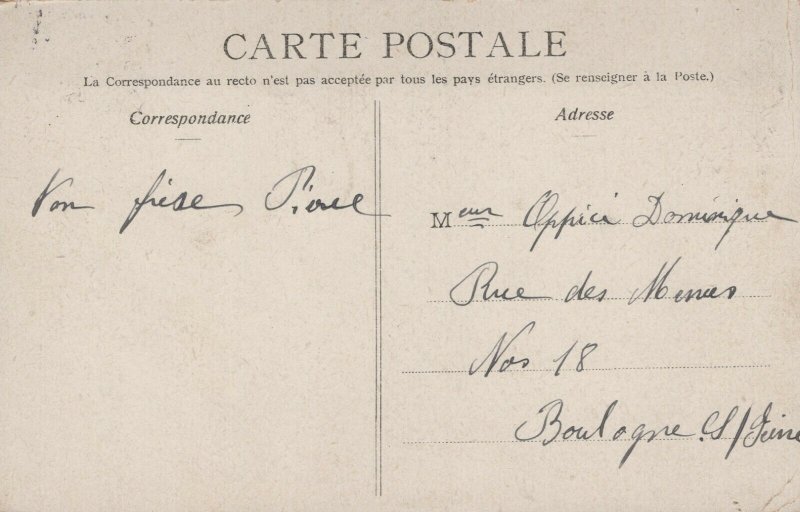 CARTE POSTALE
La Correspondance au recto n'est pas acceptée par tous les pays étrangers. (Se renseigner à la Poste.)
Correspondance
Adresse
Ton frère Pierre
Meur Oppici Dominique
Rue des Menus
Nos 18
Boulogne S/Seine